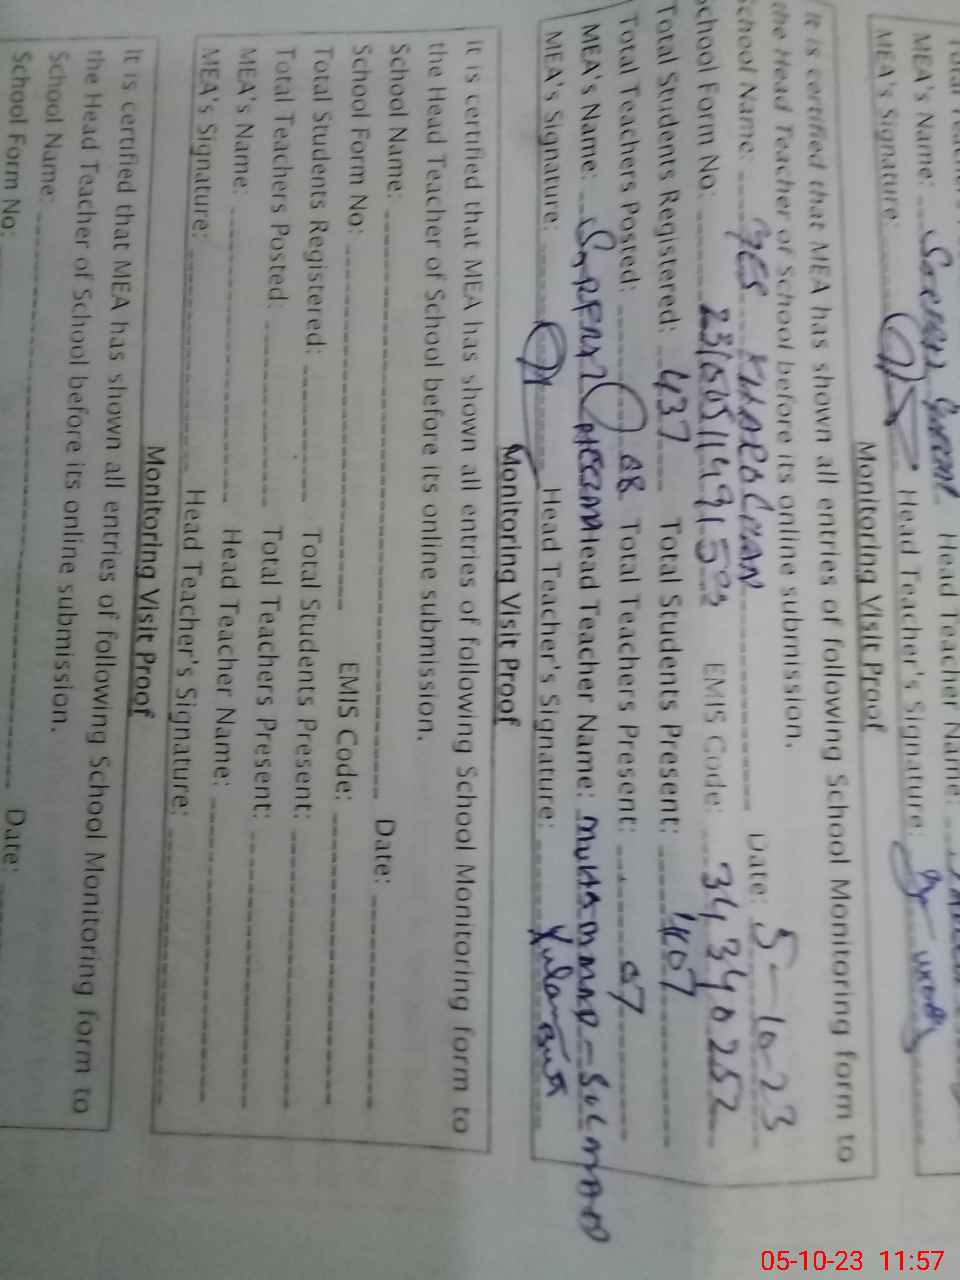 MEA's Name: Head Teacher Name:
MEA's Signature: Head Teacher's Signature:
Monitoring Visit Proof
It is certified that MEA has shown all entries of following School Monitoring form to
the Head Teacher of School before its online submission.
School Name: GES Date: 5-10-23
School Form No: EMIS Code: 34340252
Total Students Registered: 437 Total Students Present: 407
Total Teachers Posted: 08 Total Teachers Present: 07
MEA's Name: Head Teacher Name: MUHAMMAD
MEA's Signature: Head Teacher's Signature:
Monitoring Visit Proof
It is certified that MEA has shown all entries of following School Monitoring form to
the Head Teacher of School before its online submission.
School Name: Date:
School Form No: EMIS Code:
Total Students Registered: Total Students Present:
Total Teachers Posted: Total Teachers Present:
MEA's Name: Head Teacher Name:
MEA's Signature: Head Teacher's Signature:
Monitoring Visit Proof
It is certified that MEA has shown all entries of following School Monitoring form to
the Head Teacher of School before its online submission.
School Name:
School Form No: Date:
05-10-23 11:57